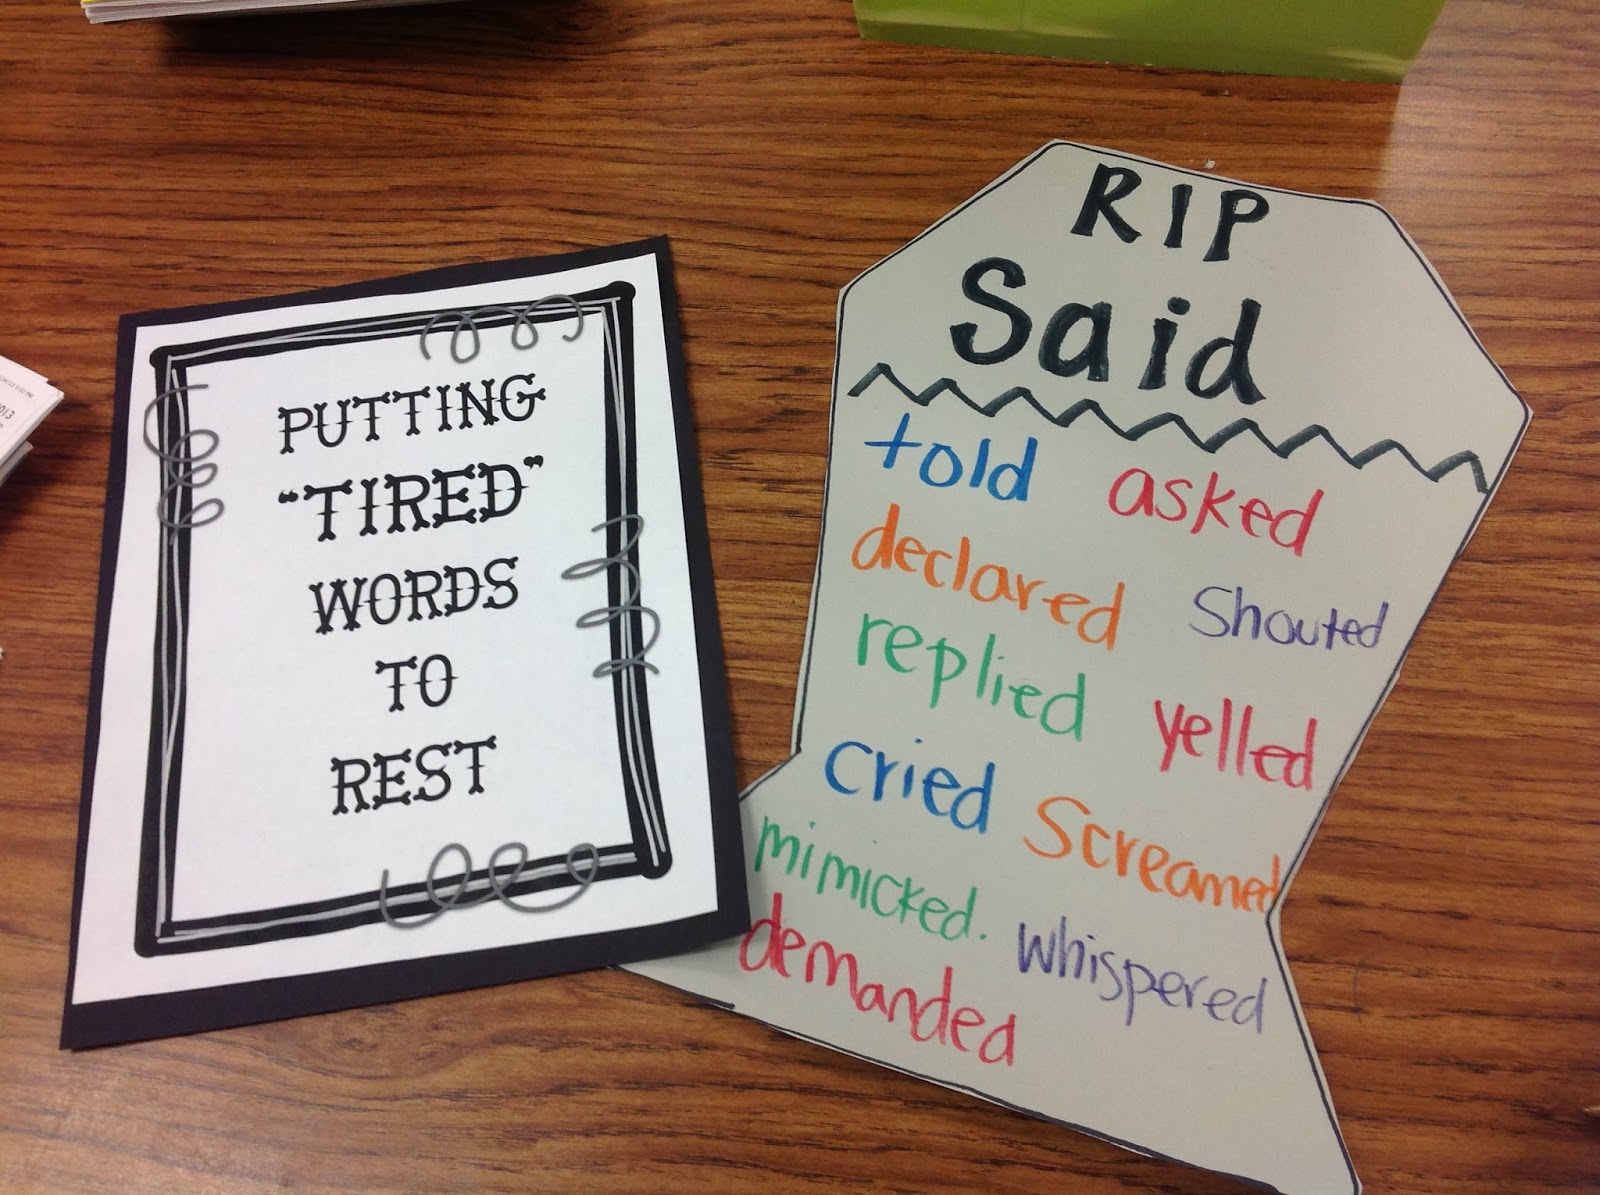 PUTTING
"TIRED"
WORDS
TO
REST
RIP
Said
told asked
declared Shouted
replied yelled
cried Screamed
mimicked. whispered
demanded
2013